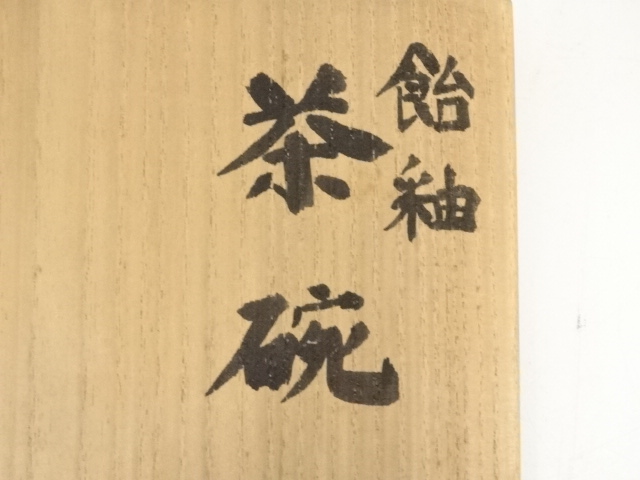 飴釉
茶碗